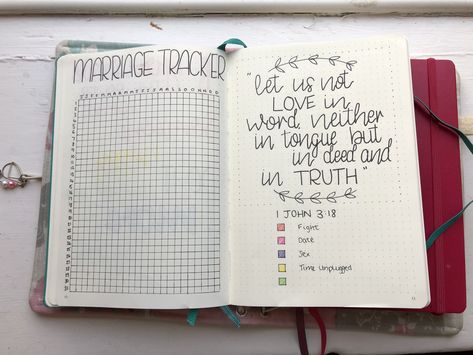 MARRIAGE TRACKER
"Let us not
LOVE in
word, neither
in tongue but
in deed and
in TRUTH"
1 JOHN 3:18
Fight
Date
Sex
Time Unplugged